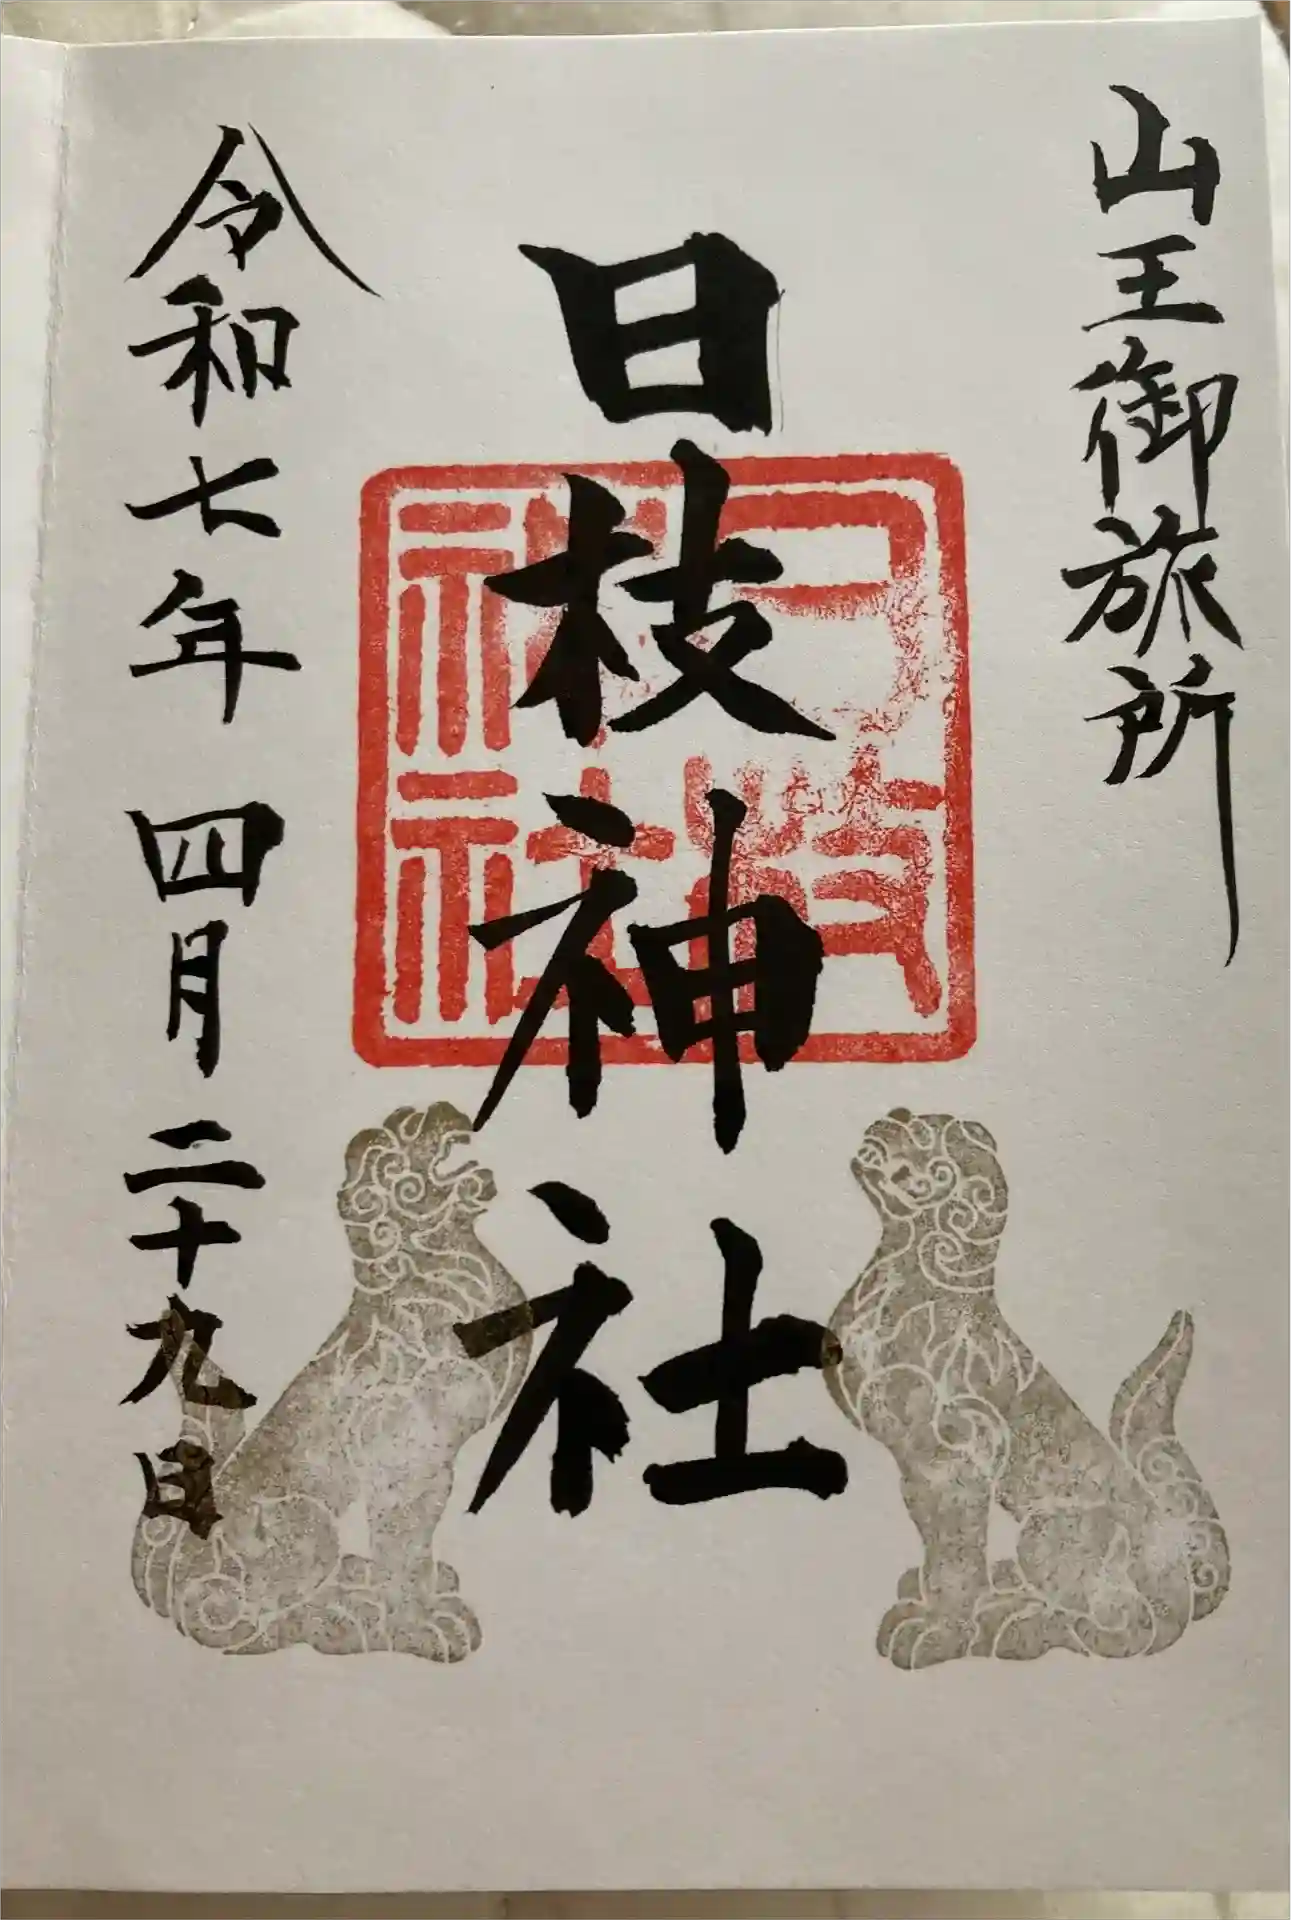 山王御旅所
日枝神社
日枝神社
令和七年四月二十九日